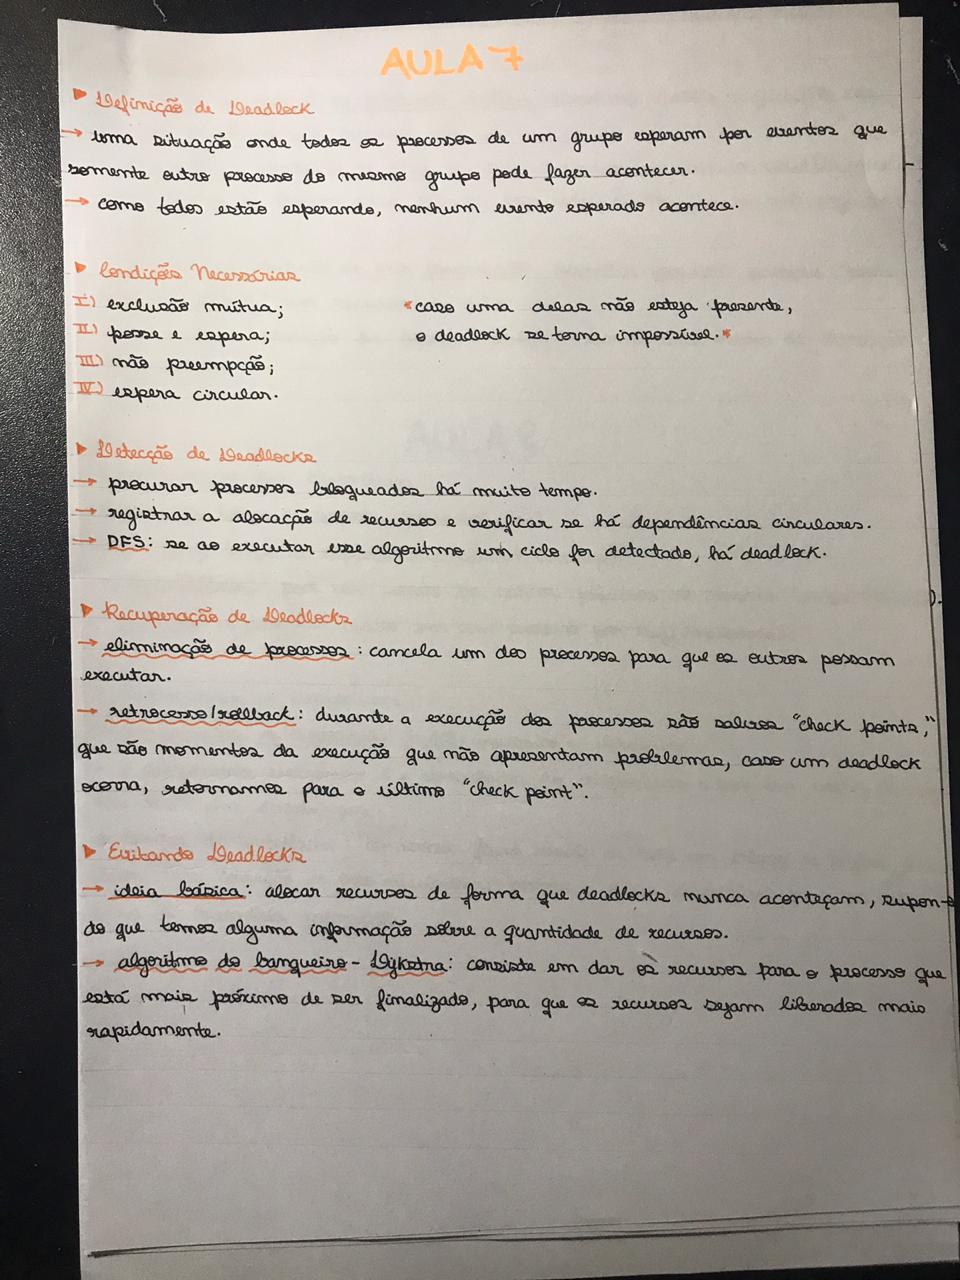 AULA 7
▶ Definição de Deadlock
→ uma situação onde todos os processos de um grupo esperam por eventos que
somente outro processo do mesmo grupo pode fazer acontecer.
→ como todos estão esperando, nenhum evento esperado acontece.
▶ Condições Necessárias
I) exclusão mútua;
II) posse e espera;
III) não preempção;
IV) espera circular.
*caso uma delas não esteja presente,
o deadlock se torna impossível.*
▶ Detecção de Deadlocks
→ procurar processos bloqueados há muito tempo.
→ registrar a alocação de recursos e verificar se há dependências circulares.
→ DFS: se ao executar esse algoritmo um ciclo for detectado, há deadlock.
▶ Recuperação de Deadlocks
→ eliminação de processos: cancela um dos processos para que os outros possam
executar.
→ retrocesso/rollback: durante a execução dos processos são salvos "check points,"
que são momentos da execução que não apresentam problemas, caso um deadlock
ocorra, retornamos para o último "check point".
▶ Evitando Deadlocks
→ ideia básica: alocar recursos de forma que deadlocks nunca aconteçam, supon-
do que temos alguma informação sobre a quantidade de recursos.
→ algoritmo do banqueiro - Dijkstra: consiste em dar os recursos para o processo que
está mais próximo de ser finalizado, para que os recursos sejam liberados mais
rapidamente.